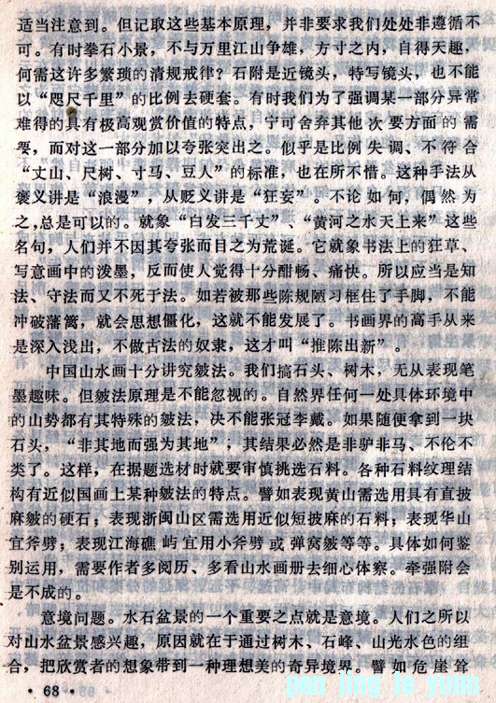 适当注意到。但记取这些基本原理，并非要求我们处处非遵循不
可。有时拳石小景，不与万里江山争雄，方寸之内，自得天趣，
何需这许多繁琐的清规戒律？石附是近镜头，特写镜头，也不能
以“咫尺千里”的比例去硬套。有时我们为了强调某一部分异常
难得的具有极高观赏价值的特点，宁可舍弃其他次要方面的需
要，而对这一部分加以夸张突出之。似乎是比例失调、不符合
“丈山、尺树、寸马、豆人”的标准，也在所不惜。这种手法从
褒义讲是“浪漫”，从贬义讲是“狂妄”。不论如何，偶然为
之，总是可以的。就象“白发三千丈”、“黄河之水天上来”这些
名句，人们并不因其夸张而目之为荒诞。它就象书法上的狂草、
写意画中的泼墨，反而使人觉得十分酣畅、痛快。所以应当是知
法、守法而又不死于法。如若被那些陈规陋习框住了手脚，不能
冲破藩篱，就会思想僵化，这就不能发展了。书画界的高手从来
是深入浅出，不做古法的奴隶，这才叫“推陈出新”。
中国山水画十分讲究皴法。我们搞石头、树木，无从表现笔
墨趣味。但皴法原理是不能忽视的。自然界任何一处具体环境中
的山势都有其特殊的皴法，决不能张冠李戴。如果随便拿到一块
石头，“非其地而强为其地”；其结果必然是非驴非马、不伦不
类了。这样，在据题选材时就要审慎挑选石料。各种石料纹理结
构有近似国画上某种皴法的特点。譬如表现黄山需选用具有直披
麻皴的硬石；表现浙闽山区需选用近似短披麻的石料；表现华山
宜斧劈；表现江海礁屿宜用小斧劈或弹窝皴等等。具体如何鉴
别运用，需要作者多阅历、多看山水画册去细心体察。牵强附会
是不成的。
意境问题。水石盆景的一个重要之点就是意境。人们之所以
对山水盆景感兴趣，原因就在于通过树木、石峰、山光水色的组
合，把欣赏者的想象带到一种理想美的奇异境界。譬如危崖耸
·68·